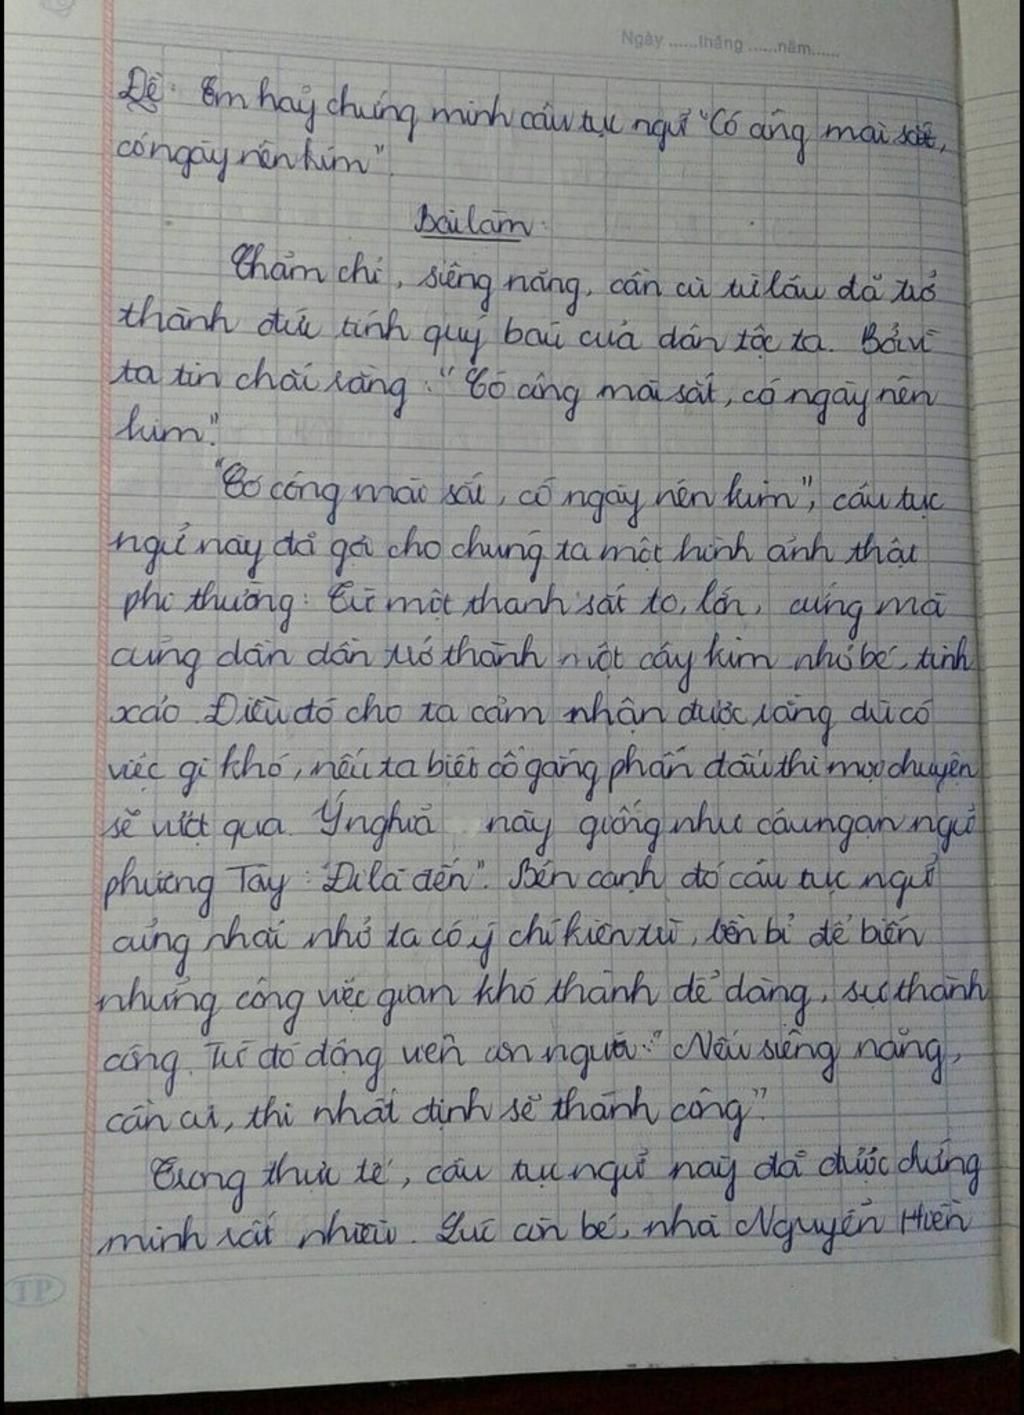 Ngày ......tháng ......năm......
Đề: Em hãy chứng minh câu tục ngữ "Có công mài sắt,
có ngày nên kim".
Bài làm:
Chăm chỉ, siêng năng, cần cù từ lâu đã trở
thành đức tính quý báu của dân tộc ta. Bởi vì
ta tin chắc rằng: "Có công mài sắt, có ngày nên
kim".
"Có công mài sắt, có ngày nên kim", câu tục
ngữ này đã gợi cho chúng ta một hình ảnh thật
phi thường: Từ một thanh sắt to, lớn, cứng mà
cũng dần dần trở thành một cây kim nhỏ bé, tinh
xảo. Điều đó cho ta cảm nhận được rằng dù có
việc gì khó, nếu ta biết cố gắng phấn đấu thì mọi chuyện
sẽ vượt qua. Ý nghĩa này giống như câu ngạn ngữ
phương Tây: "Đi là đến". Bên cạnh đó câu tục ngữ
cũng nhắc nhở ta có ý chí kiên trì, bền bỉ để biến
những công việc gian khó thành dễ dàng, sự thành
công. Từ đó động viên con người: "Nếu siêng năng,
cần cù, thì nhất định sẽ thành công".
Trong thực tế, câu tục ngữ này đã được chứng
minh rất nhiều. Lúc còn bé, nhà Nguyễn Hiền
TP